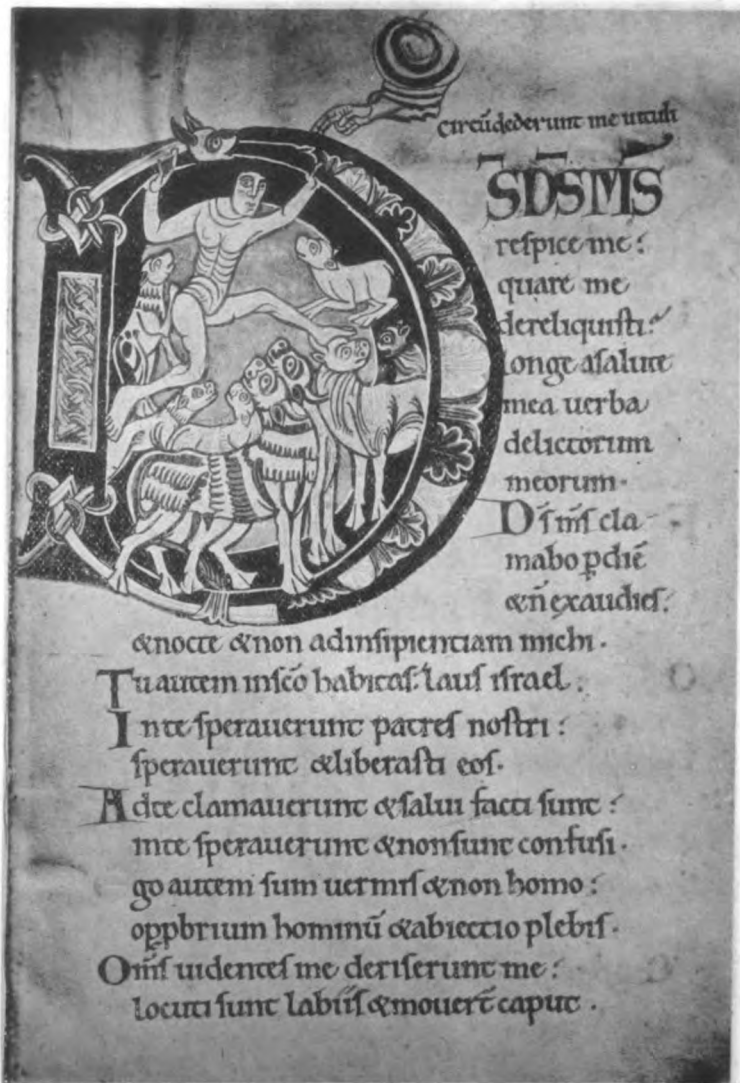 Circūdederunt me uituli
S̄ D̄S M̄S
respice me:
quare me
dereliquisti:
longe asalute
mea uerba
delictorum
meorum.
Ds̄ ms̄ cla
mabo p̱ diē
& n̄ exaudies:
& nocte & non ad insipientiam michi.
Tu autem in sc̄o habitas: laus israel.
In te sperauerunt patres nostri:
sperauerunt & liberasti eos.
Ad te clamauerunt & salui facti sunt:
in te sperauerunt & non sunt confusi.
go autem sum uermis & non homo:
opp̱brium hominū & abiectio plebis.
Om̄s uidentes me deriserunt me:
locuti sunt labiis & mouer̄t caput.